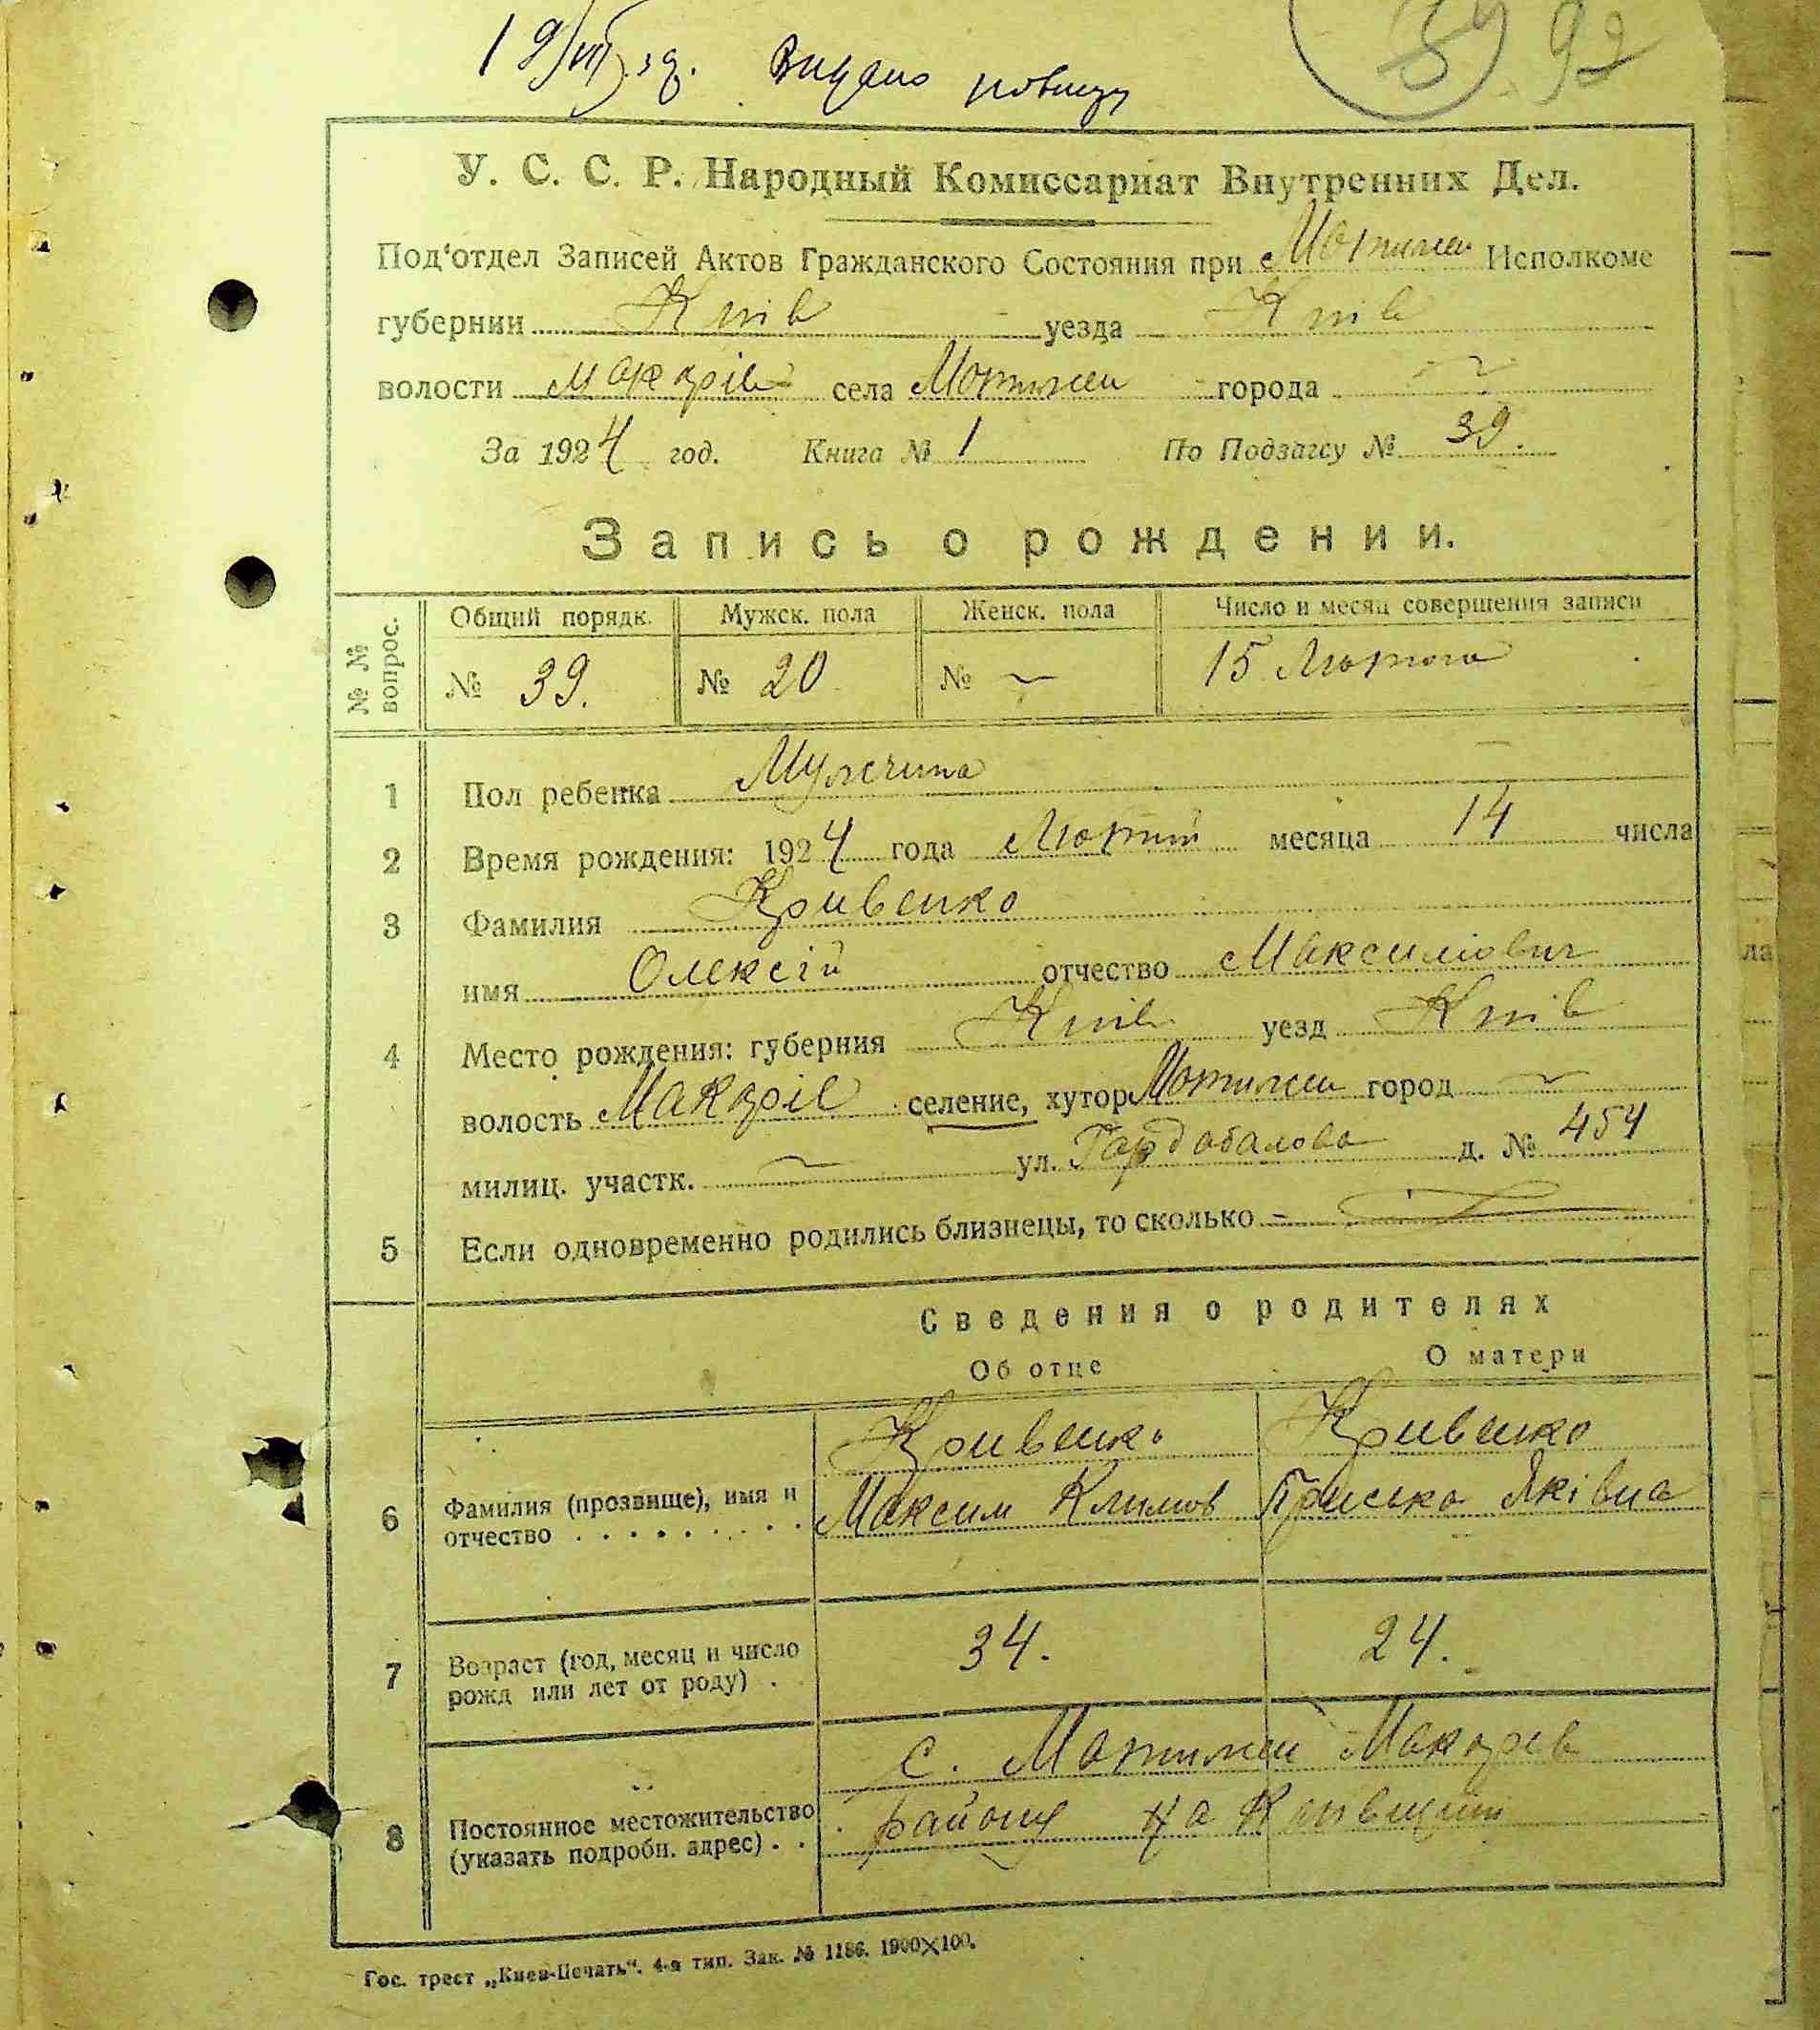 Видано
92
У. С. С. Р. Народный Комиссариат Внутренних Дел.
Под‘отдел Записей Актов Гражданского Состояния при Мотижен Исполкоме
губернии Київ уезда Київ
волости Макарів села Мотижен города ~
За 1924 год. Книга № 1 По Подзагсу № 39.
Запись о рождении.
№ № вопрос.
Общий порядк. Мужск. пола Женск. пола Число и месяц совершения записи
№ 39. № 20 № ~ 15 Лютого
1 Пол ребенка Мужчина
2 Время рождения: 1924 года Лютий месяца 14 числа
3 Фамилия Кривенко
имя Олексій отчество Максимович
4 Место рождения: губерния Київ уезд Київ
волость Макарів селение, хутор Мотижен город ~
милиц. участк. ~ ул. д. № 454
5 Если одновременно родились близнецы, то сколько –
Сведения о родителях
Об отце О матери
Кривенко Кривенко
6 Фамилия (прозвище), имя и отчество Максим Климов Приська Яківна
7 Возраст (год, месяц и число рожд или лет от роду) . 34. 24.
с. Мотижен Макарів
8 Постоянное местожительство (указать подробн. адрес) . . району на Київщині
Гос. трест „Киев-Печать“. 4-я тип. Зак. № 1186. 1900×100.